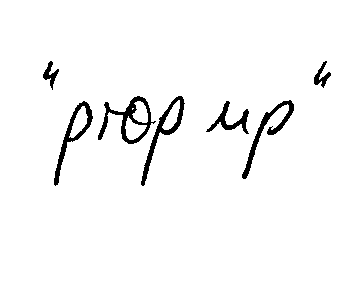 "prop up"